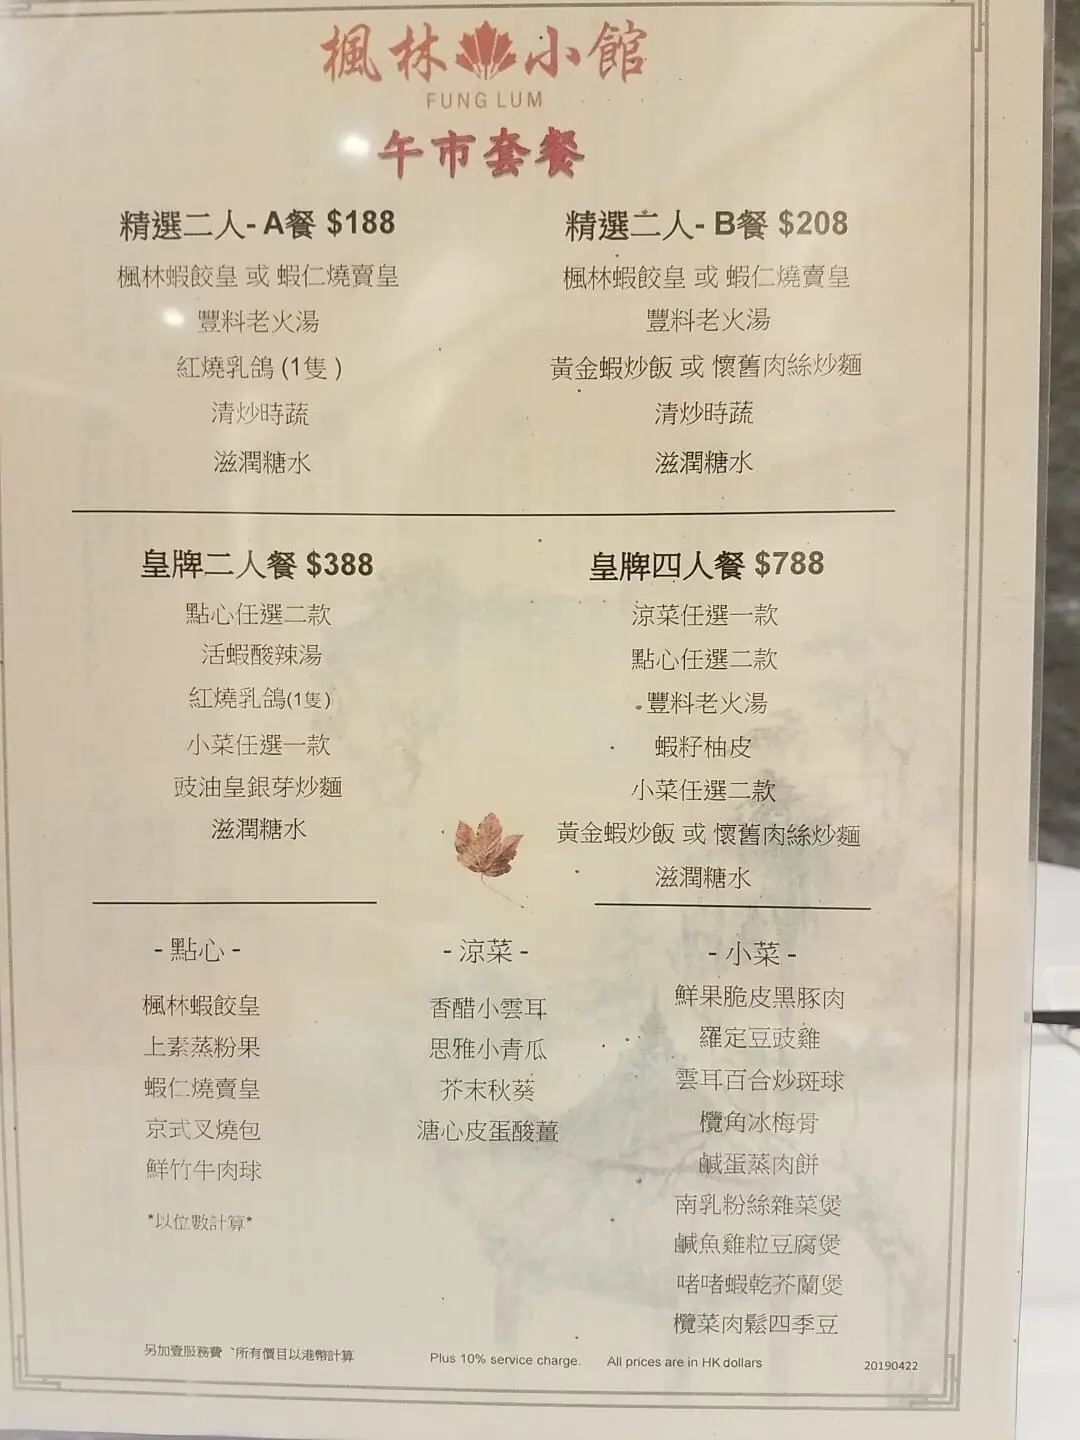 楓林小館
FUNG LUM
午市套餐
精選二人- A餐 $188
楓林蝦餃皇 或 蝦仁燒賣皇
豐料老火湯
紅燒乳鴿 (1隻 )
清炒時蔬
滋潤糖水
精選二人- B餐 $208
楓林蝦餃皇 或 蝦仁燒賣皇
豐料老火湯
黃金蝦炒飯 或 懷舊肉絲炒麵
清炒時蔬
滋潤糖水
皇牌二人餐 $388
點心任選二款
活蝦酸辣湯
紅燒乳鴿(1隻)
小菜任選一款
豉油皇銀芽炒麵
滋潤糖水
皇牌四人餐 $788
涼菜任選一款
點心任選二款
豐料老火湯
蝦籽柚皮
小菜任選二款
黃金蝦炒飯 或 懷舊肉絲炒麵
滋潤糖水
- 點心 -
楓林蝦餃皇
上素蒸粉果
蝦仁燒賣皇
京式叉燒包
鮮竹牛肉球
*以位數計算*
- 涼菜 -
香醋小雲耳
思雅小青瓜
芥末秋葵
溏心皮蛋酸薑
- 小菜 -
鮮果脆皮黑豚肉
羅定豆豉雞
雲耳百合炒斑球
欖角冰梅骨
鹹蛋蒸肉餅
南乳粉絲雜菜煲
鹹魚雞粒豆腐煲
啫啫蝦乾芥蘭煲
欖菜肉鬆四季豆
另加壹服務費、所有價目以港幣計算
Plus 10% service charge. All prices are in HK dollars
20190422